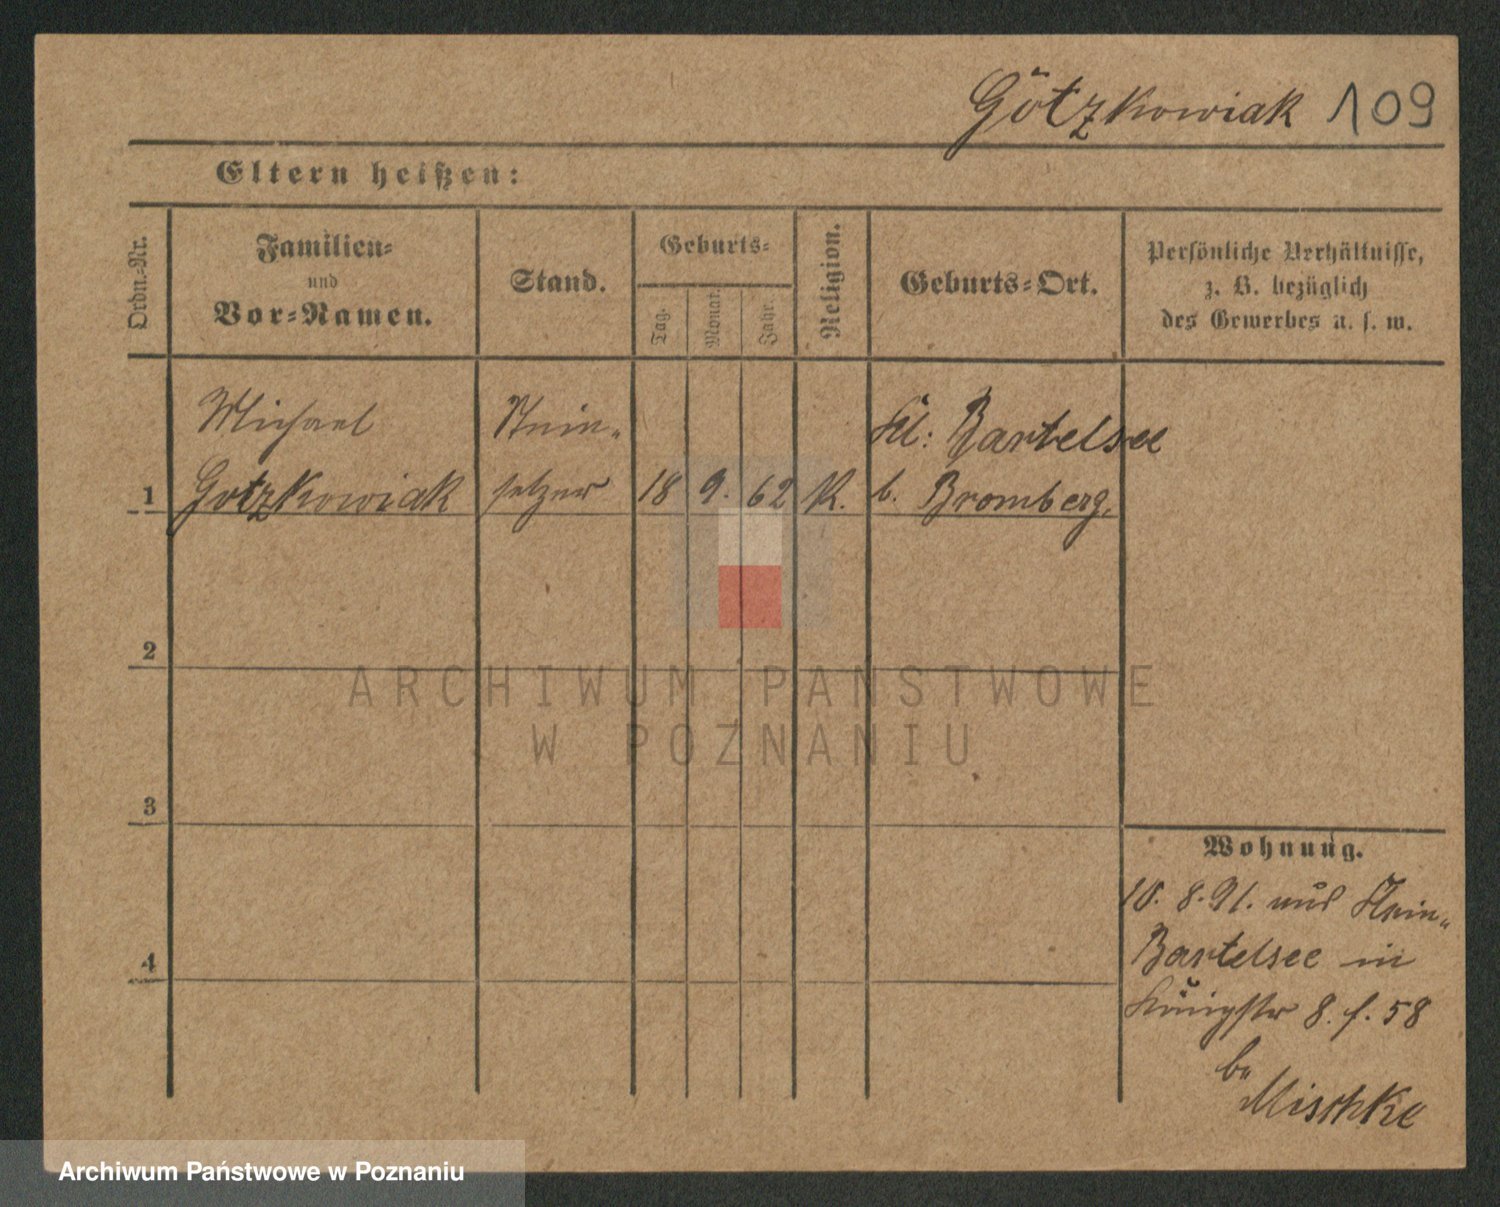 Götzkowiak 109
Eltern heißen:
Ordn.-Nr.
Familien-
und
Vor-Namen.
Stand.
Geburts-
Tag.
Monat.
Jahr.
Religion.
Geburts-Ort.
Persönliche Verhältnisse,
z. B. bezüglich
des Gewerbes u. s. w.
Michael Stein- Kl: Bartelsee
1 Gotzkowiak setzer 18 9. 62 K. b. Bromberg.
2
3
4
Wohnung.
10. 8. 91. aus Klein-
Bartelsee in
Königstr 8. f. 58
b.
Mischke
ARCHIWUM PAŃSTWOWE
W POZNANIU
Archiwum Państwowe w Poznaniu